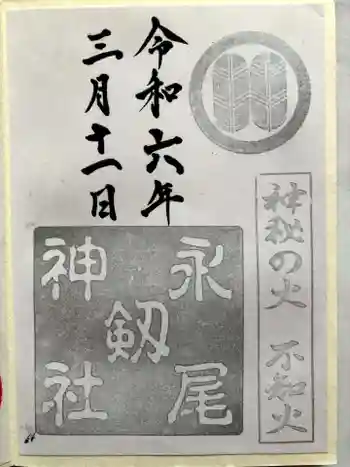 神秘の火 不知火
令和六年
三月十一日
永尾
剱
神社